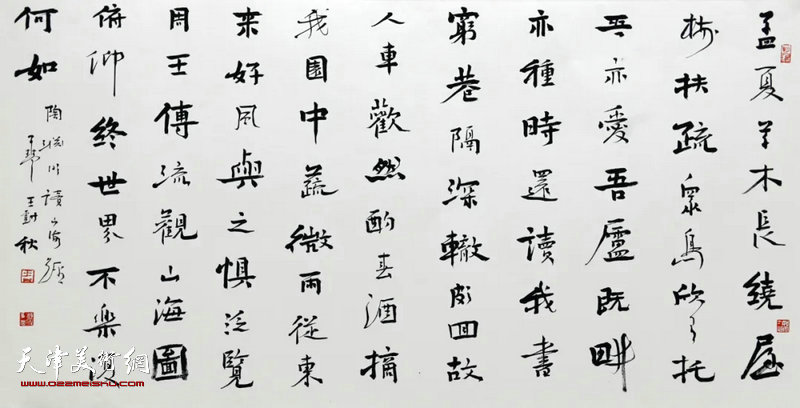 孟夏草木長繞屋
樹扶疏眾鳥欣有托
吾亦愛吾廬既畊
亦種時還讀我書
窮巷隔深轍頗回故
人車歡然酌春酒摘
我園中蔬微雨從東
来好風與之惧泛覽
周王傳流觀山海圖
俯仰終世界不樂復
何如
陶淵明讀山海經
秋
天津美術網
www.022meishu.com